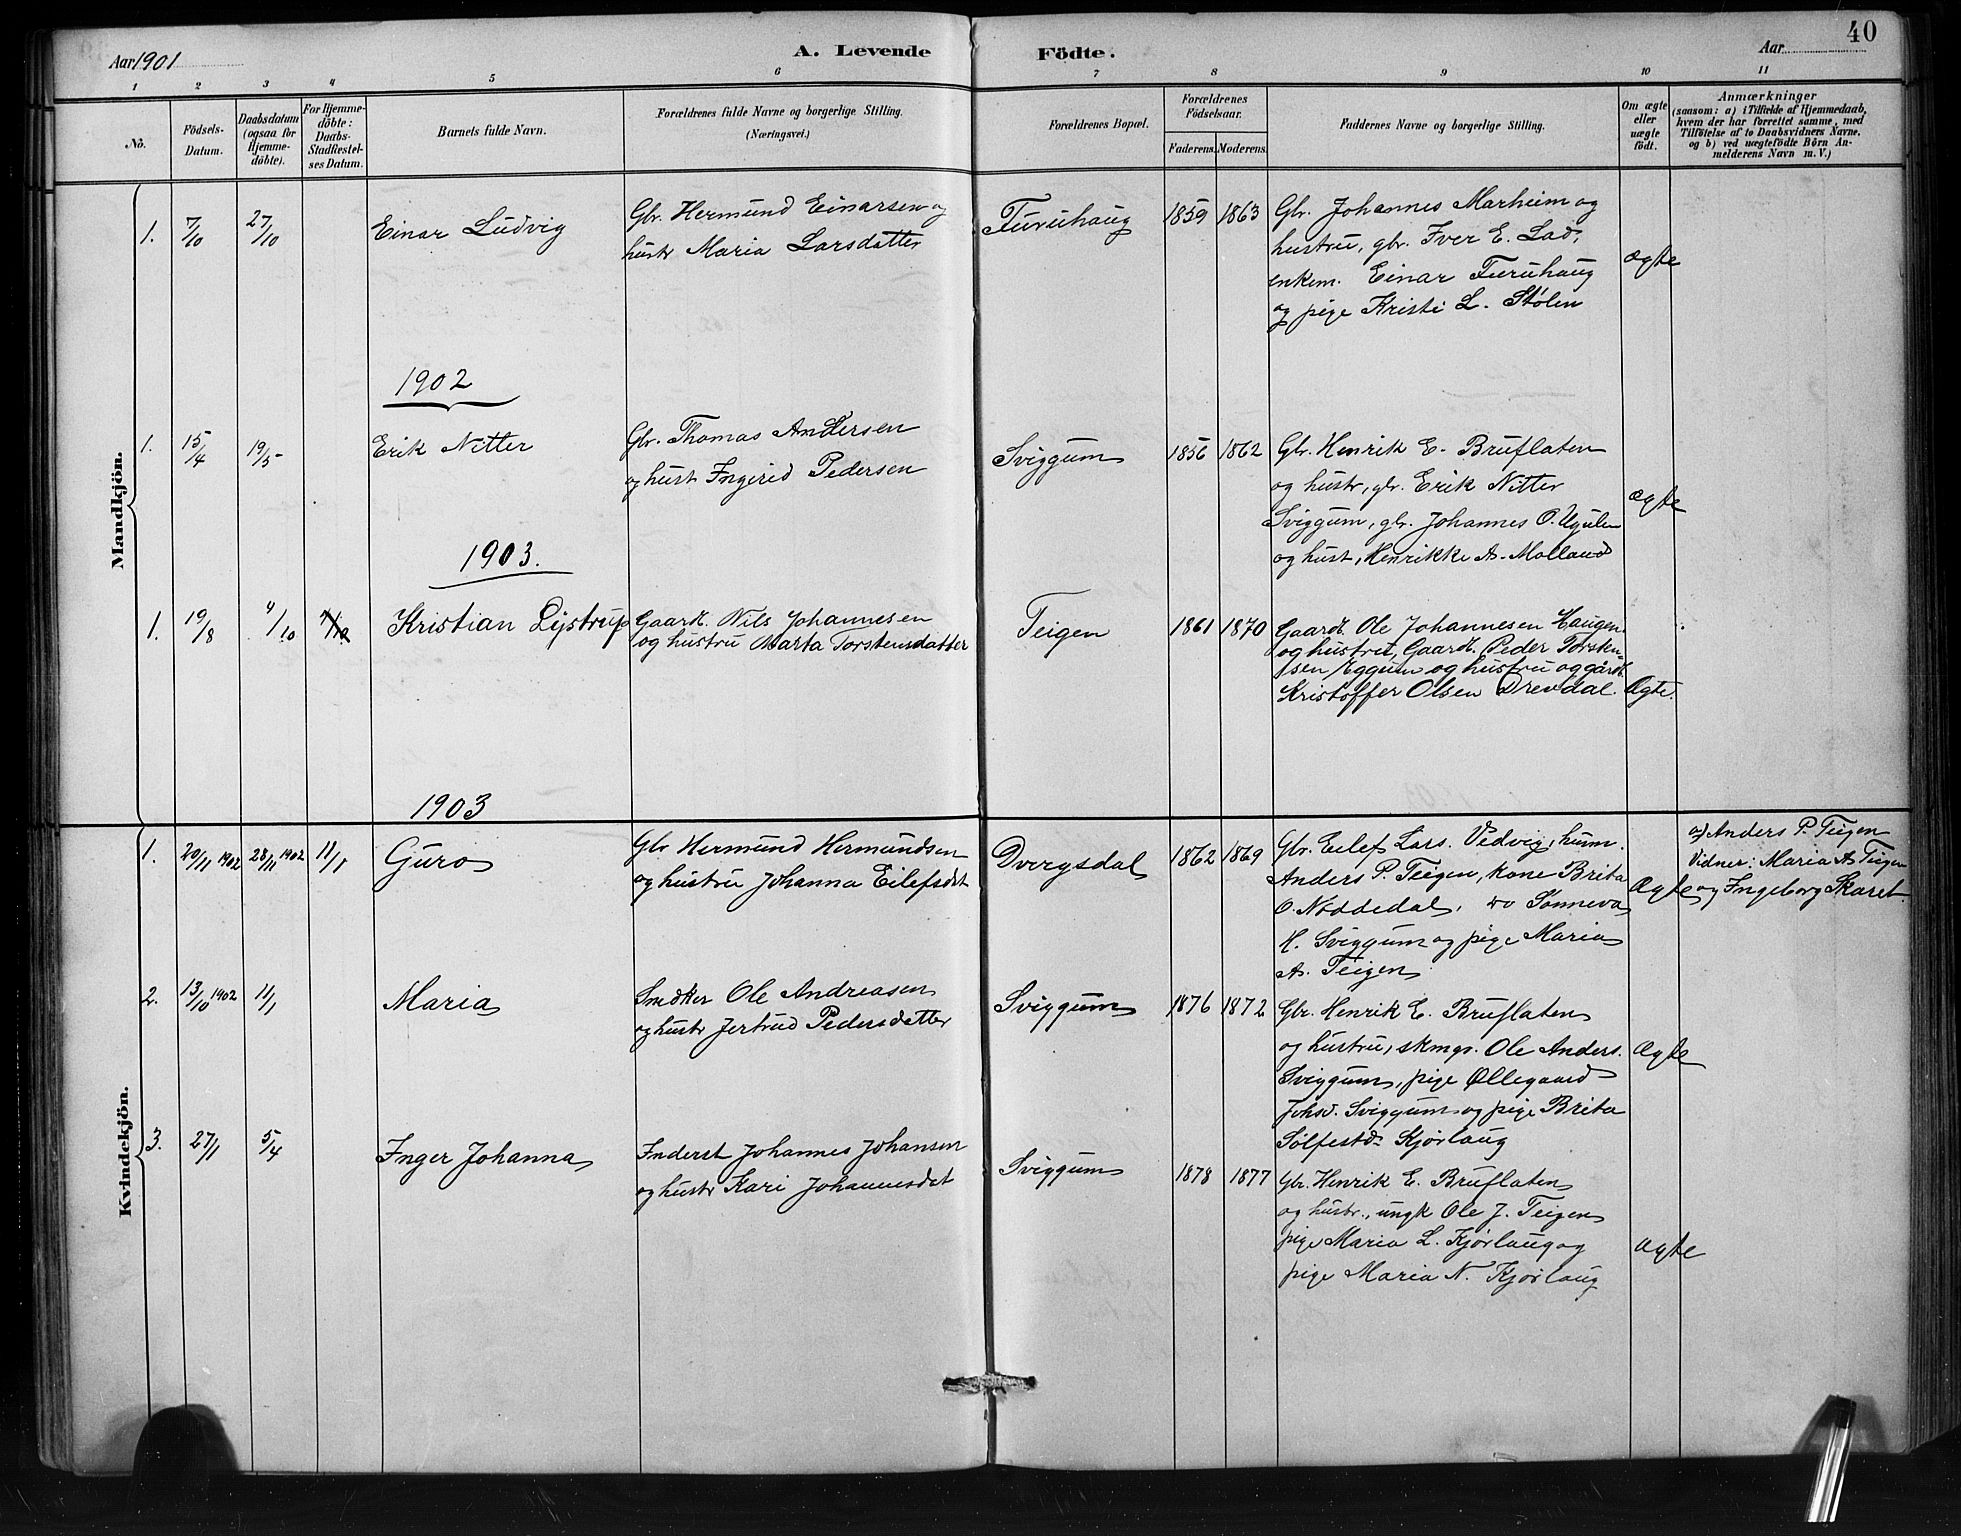 40
Aar 1901
A. Levende Födte.
Aar
1 2 3 4 5 6 7 8 9 10 11
No.
Födsels-Datum.
Daabsdatum (ogsaa for Hjemme-döbte).
For Hjemme-döbte: Daabs-Stadfæstel-ses Datum.
Barnets fulde Navn.
Forældrenes fulde Navne og borgerlige Stilling.
(Næringsvei.)
Forældrenes Bopæl.
Forældrenes Födselsaar.
Faderens. Moderens.
Faddernes Navne og borgerlige Stilling.
Om ægte eller uægte födt.
Anmærkninger
(saasom: a) i Tilfælde af Hjemmedaab, hvem der har forrettet samme, med Tilföielse af to Daabsvidners Navne, og b) ved uægtefödte Börn An-melderens Navn m. V.)
Mandkjön.
1. 7/10 27/10 Einar Ludvig
Gbr. Hermund Einarsen og
hustr Maria Larsdatter
Furuhaug 1859 1863
Gbr. Johannes Marheim og
hustru, gbr. Iver E. Lad,
enkem. Einar Furuhaug
og pige Kristi L. Stølen
ægte
1902
1. 15/4 19/5 Erik Nitter
Gbr. Thomas Andersen
og hust Ingerid Pedersen
Sviggum 1856 1862
Gbr. Henrik E. Bruflaten
og hustr, gbr. Erik Nitter
Sviggum, gbr. Johannes O. Ugulen
og hust, Henrikke A. Molland
ægte
1903.
1. 19/8 4/10 Kristian Lystrup
Gaardb. Nils Johannesen
og hustru Marta Torstensdatter
Teigen 1861 1870
Gaardb. Ole Johannesen Haugen
og hustru, Gaardb. Peder Torsten-
sen Eggum og hustru og gårdb.
Kristoffer Olsen Drevdal.
Ægte.
1903
Kvindekjön.
1. 20/11 1902 28/11 1902 11/1 Guro
Gbr Hermund Hermundsen
og hustru Johanna Eilefsdat
Dvergsdal 1862 1869
Gbr. Eilef Lars. Vedvig, husm.
Anders P. Teigen, kone Brita
O. Nøddedal, Sønneva
H. Sviggum og pige Maria
A. Teigen
Ægte
af Anders P. Teigen
Vidner: Maria A Teigen
og Ingeborg Skaret
2. 13/10 1902 11/1 Maria
Snedker Ole Andreasen
og hustr Jertrud Pedersdatter
Sviggum 1876 1872
Gbr. Henrik E. Bruflaten
og hustru, Ole Anders.
Sviggum, pige Øllegaard
Johsd. Sviggum og pige Brita
Sølfestd. Kjørlaug
Ægte
3. 27/1 5/4 Inger Johanna
Inderst Johannes Johansen
og hustr Kari Johannesdat
Sviggum 1878 1877
Gbr. Henrik E. Bruflaten
og hustr., ungk Ole J. Teigen
pige Maria L. Kjørlaug og
pige Maria N. Kjørlaug
Ægte